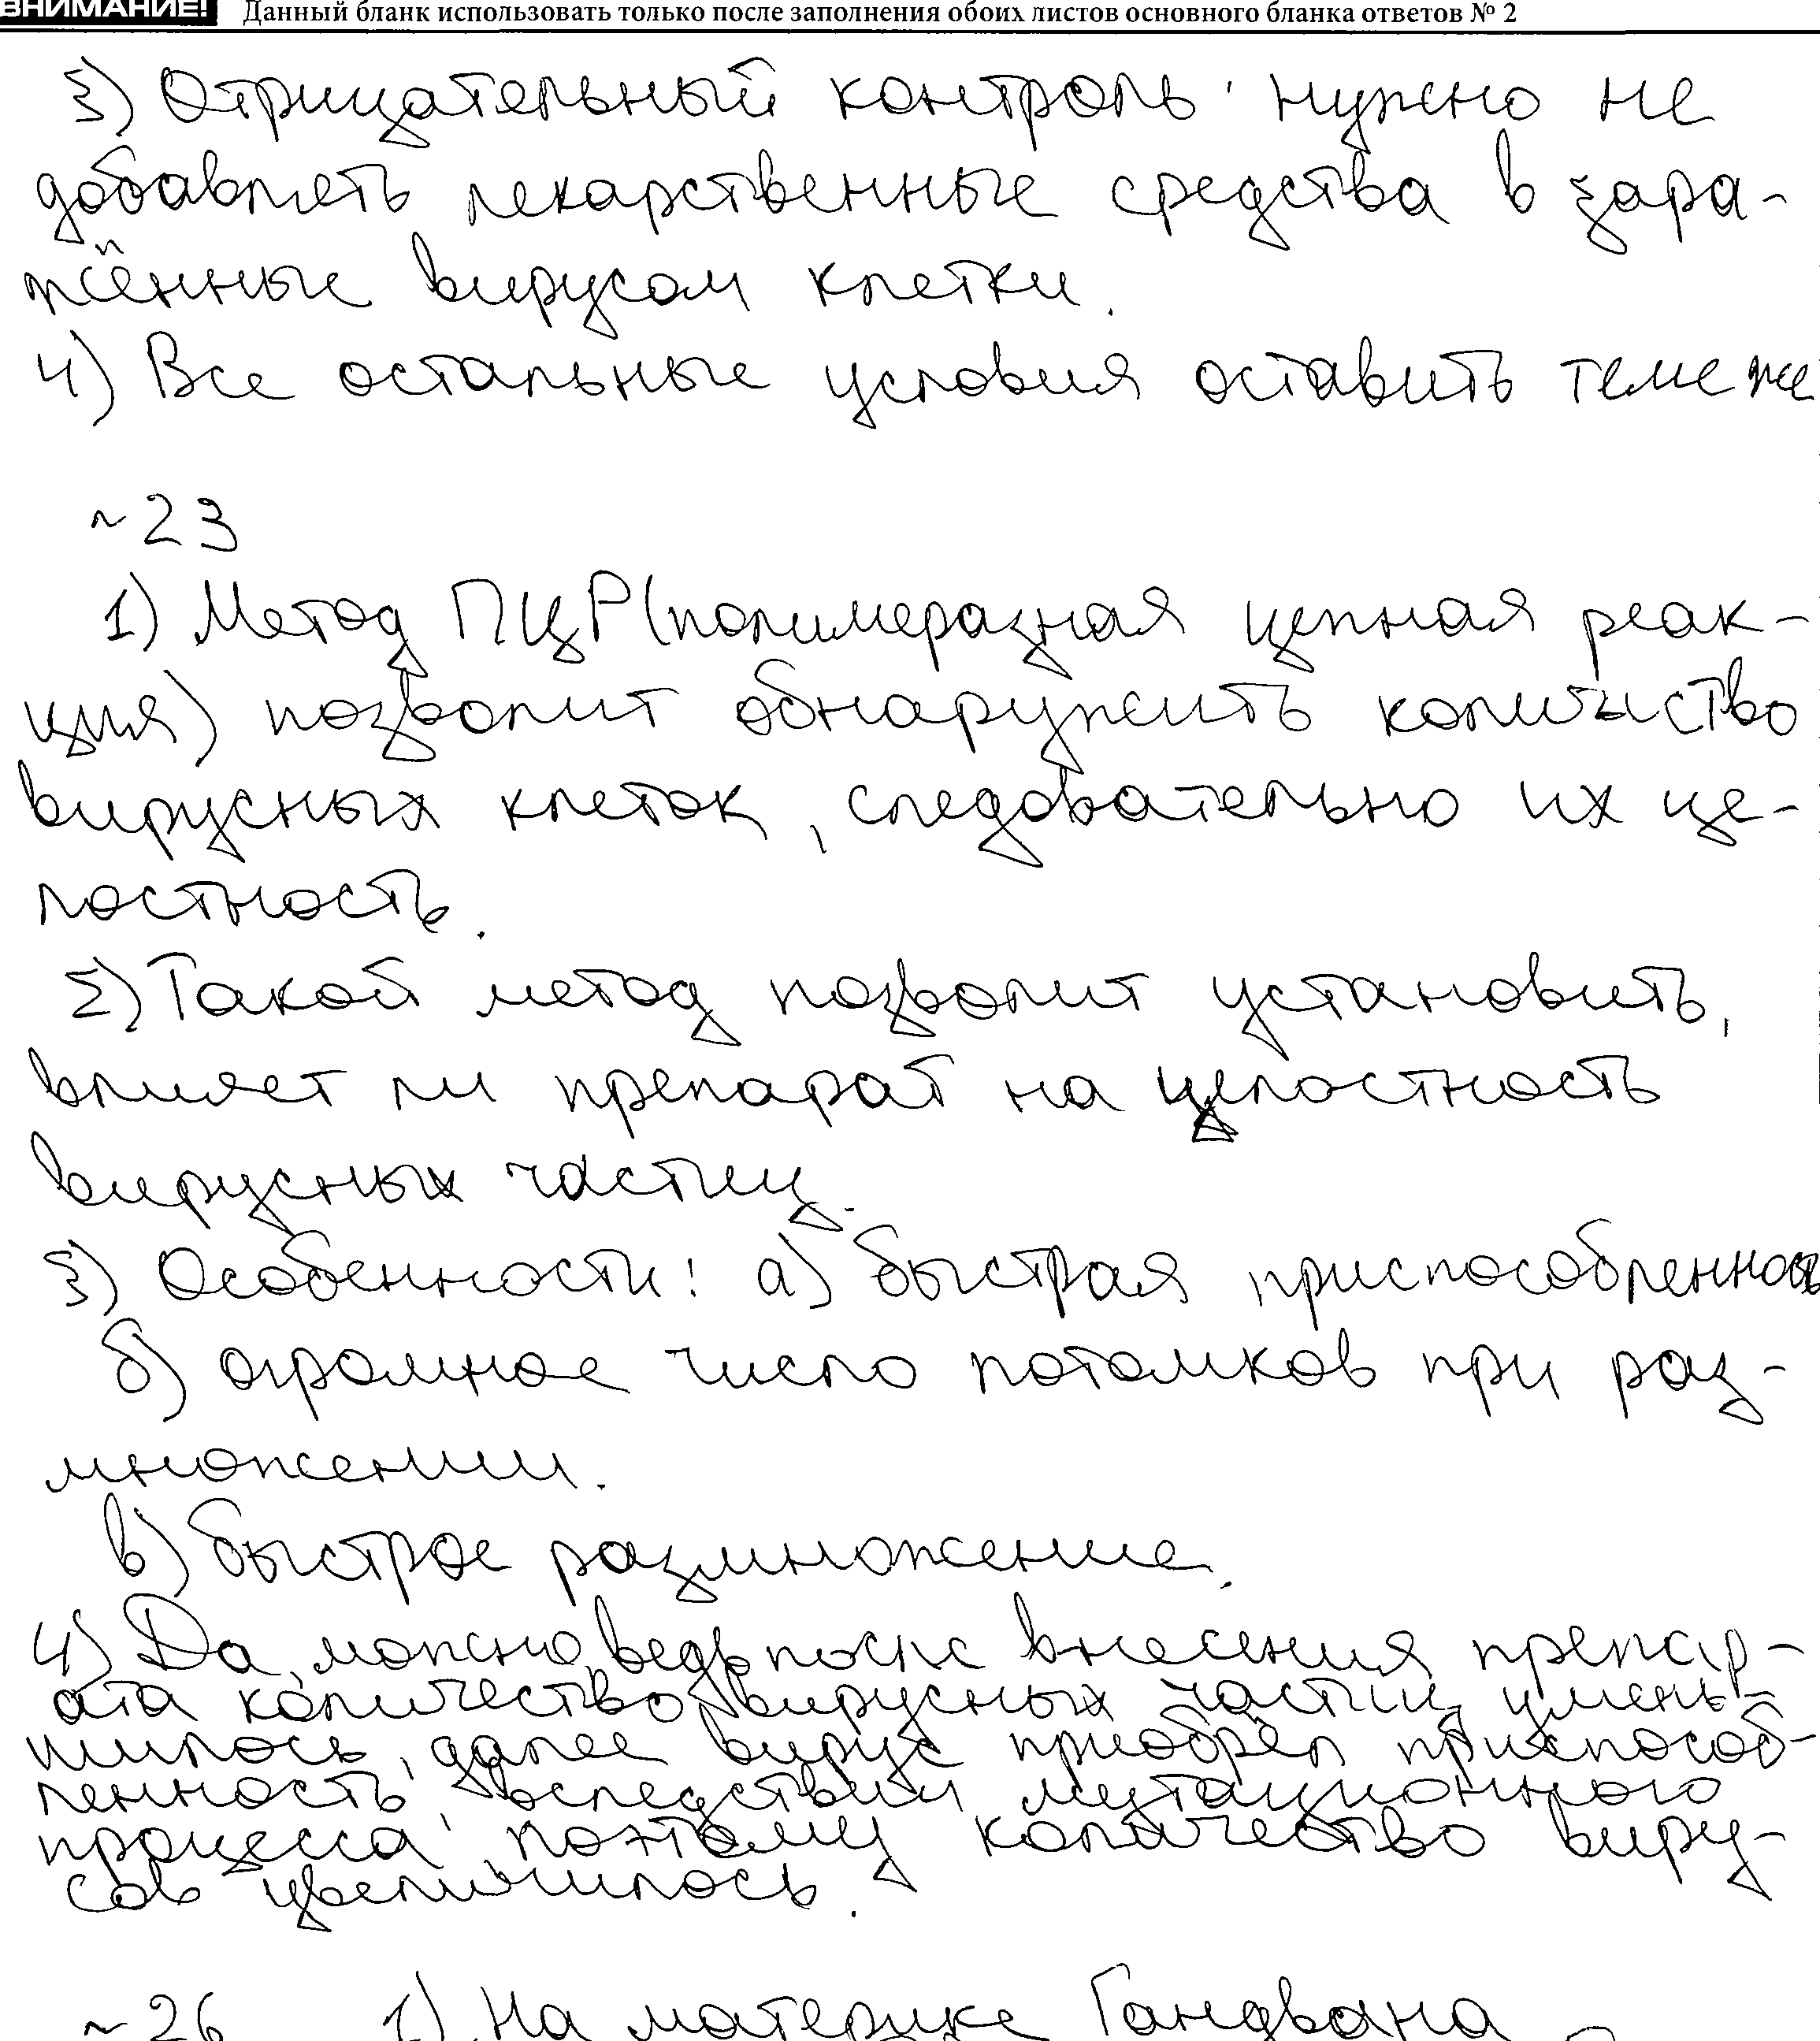 ВНИМАНИЕ! Данный бланк использовать только после заполнения обоих листов основного бланка ответов № 2
3) Отрицательный контроль: нужно не
добавлять лекарственные средства в зара-
жённые вирусом клетки.
4) Все остальные условия оставить теме же
~23
1) Метод ПЦР (полимеразная цепная реак-
ция) позволит обнаружить количество
вирусных клеток, следовательно их це-
лостность.
2) Такой метод позволит установить,
влияет ли препарат на целостность
вирусных частиц.
3) Особенности: а) быстрая приспособленность
б) огромное число потомков при раз-
множении.
в) быстрое размножение.
4) Да, можно, ведь после внесения препар-
ата количество вирусных частиц умень-
шилось, далее вирус приобрёл приспособ-
ленность, вследствии мутационного
процесса, поэтому количество виру-
сов увеличилось.
~26 1) На материке Гандвана